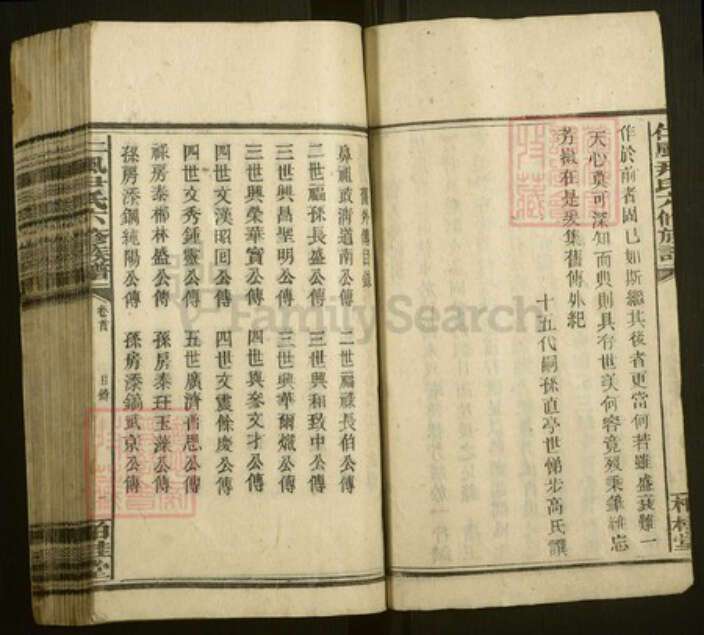 作於前者固已如斯繼其後者更當何若雖盛衰難一
天心莫可深知而典則具在世美何容竟殘秉筆維忘
芳徽在是爰集舊傳外紀
十五代嗣孫直亭世悌步高氏譔
仁風尹氏六修族譜
舊外傳目錄
鼻祖政濟道南公傳 二世福祿長伯公傳
二世福孫長盛公傳 三世興和致中公傳
三世興昌聖明公傳 三世興華爾熾公傳
三世興榮華實公傳 四世興奎文才公傳
四世文漢昭回公傳 四世文震餘慶公傳
四世文秀鍾靈公傳 五世廣濟晉恩公傳
祿房泰楖林盛公傳 孫房泰玨玉藻公傳
孫房添鋼純陽公傳 孫房添鎬武京公傳
仁風尹氏六修族譜 卷首 目錄
FamilySearch